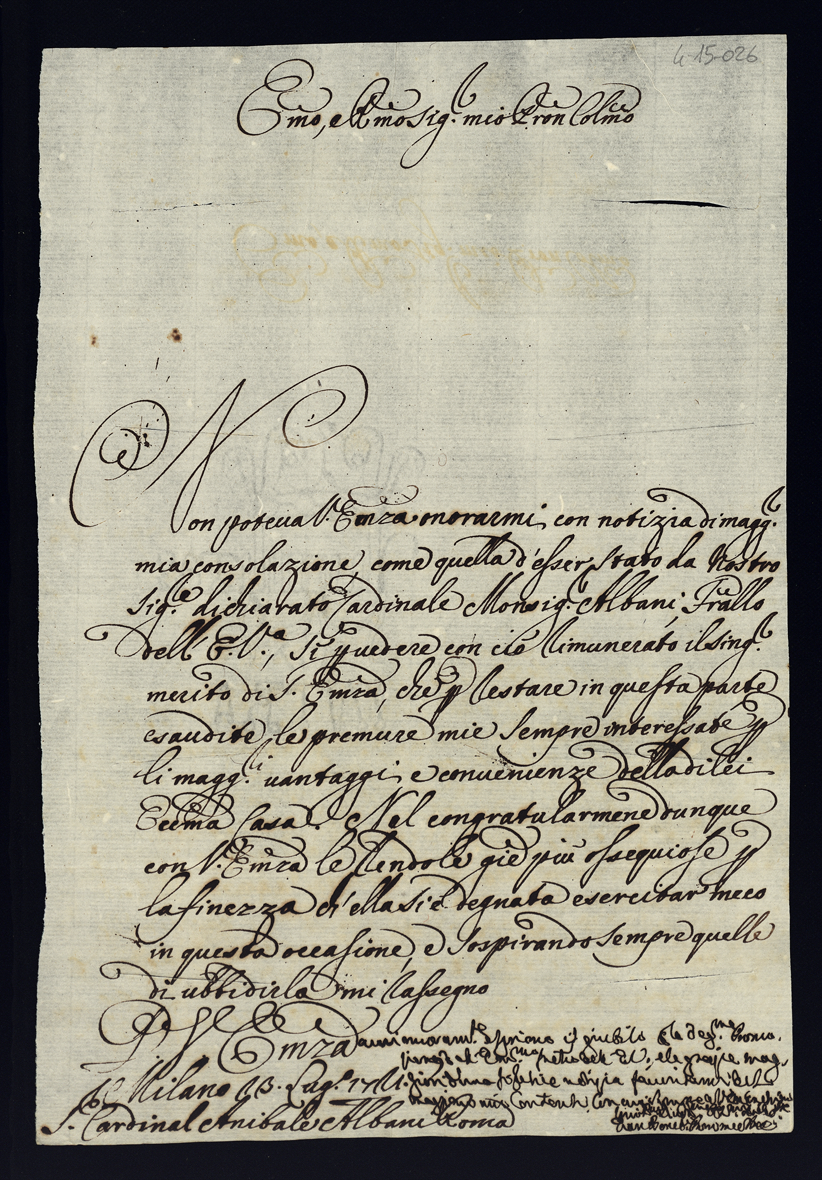 4-15-026
Emo, e Rmo Sig.r mio Pron Colmo
Non poteua V. Emza onorarmi con notizia di magg.r
mia consolazione, come quella d'esser stato da Nostro
Sig.re dichiarato Cardinale Monsig.r Albani, Frãllo
dell'E. V.a, Sì p uedere con ciò rimunerato il sing.r
merito di S. Emza, che p restare in questa parte
esaudite le premure mie sempre interessate p
li magg.ri uantaggi e conuenienze della di lei
Eccma Casa. Nel congratularmene dunque
con V. Emza le rendo le gie più ossequiose p
la finezza ch'ella si è degnata esercitar meco
in questa occasione, e sospirando sempre quelle
di ubbidirla mi rassegno
D V Emza
esprimo il giubilo
e le grazie
notizia
Milano 13. Lug.o 1711
S. Cardinal Anibale Albani Roma